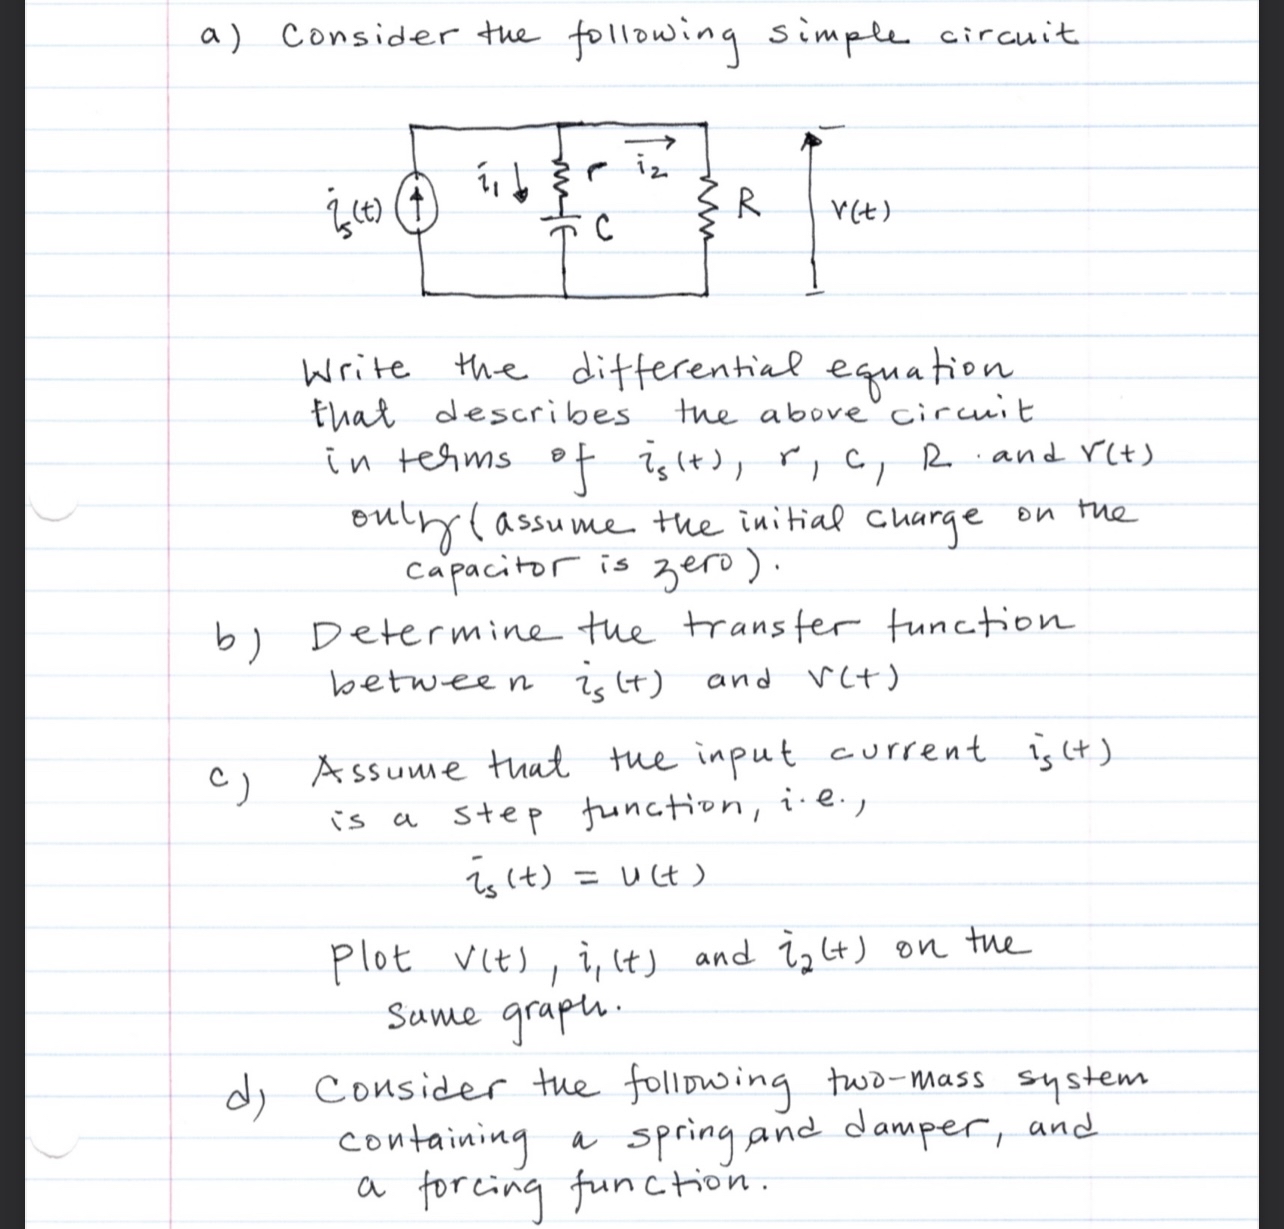 a) Consider the following simple circuit
i₁ r i₂
iₛ(t) R v(t)
C
Write the differential equation
that describes the above circuit
in terms of iₛ(t), r, C, R and v(t)
only (assume the initial charge on the
capacitor is zero).
b) Determine the transfer function
between iₛ(t) and v(t)
c) Assume that the input current iₛ(t)
is a step function, i.e.,
iₛ(t) = u(t)
Plot v(t), i₁(t) and i₂(t) on the
same graph.
d) Consider the following two-mass system
containing a spring and damper, and
a forcing function.